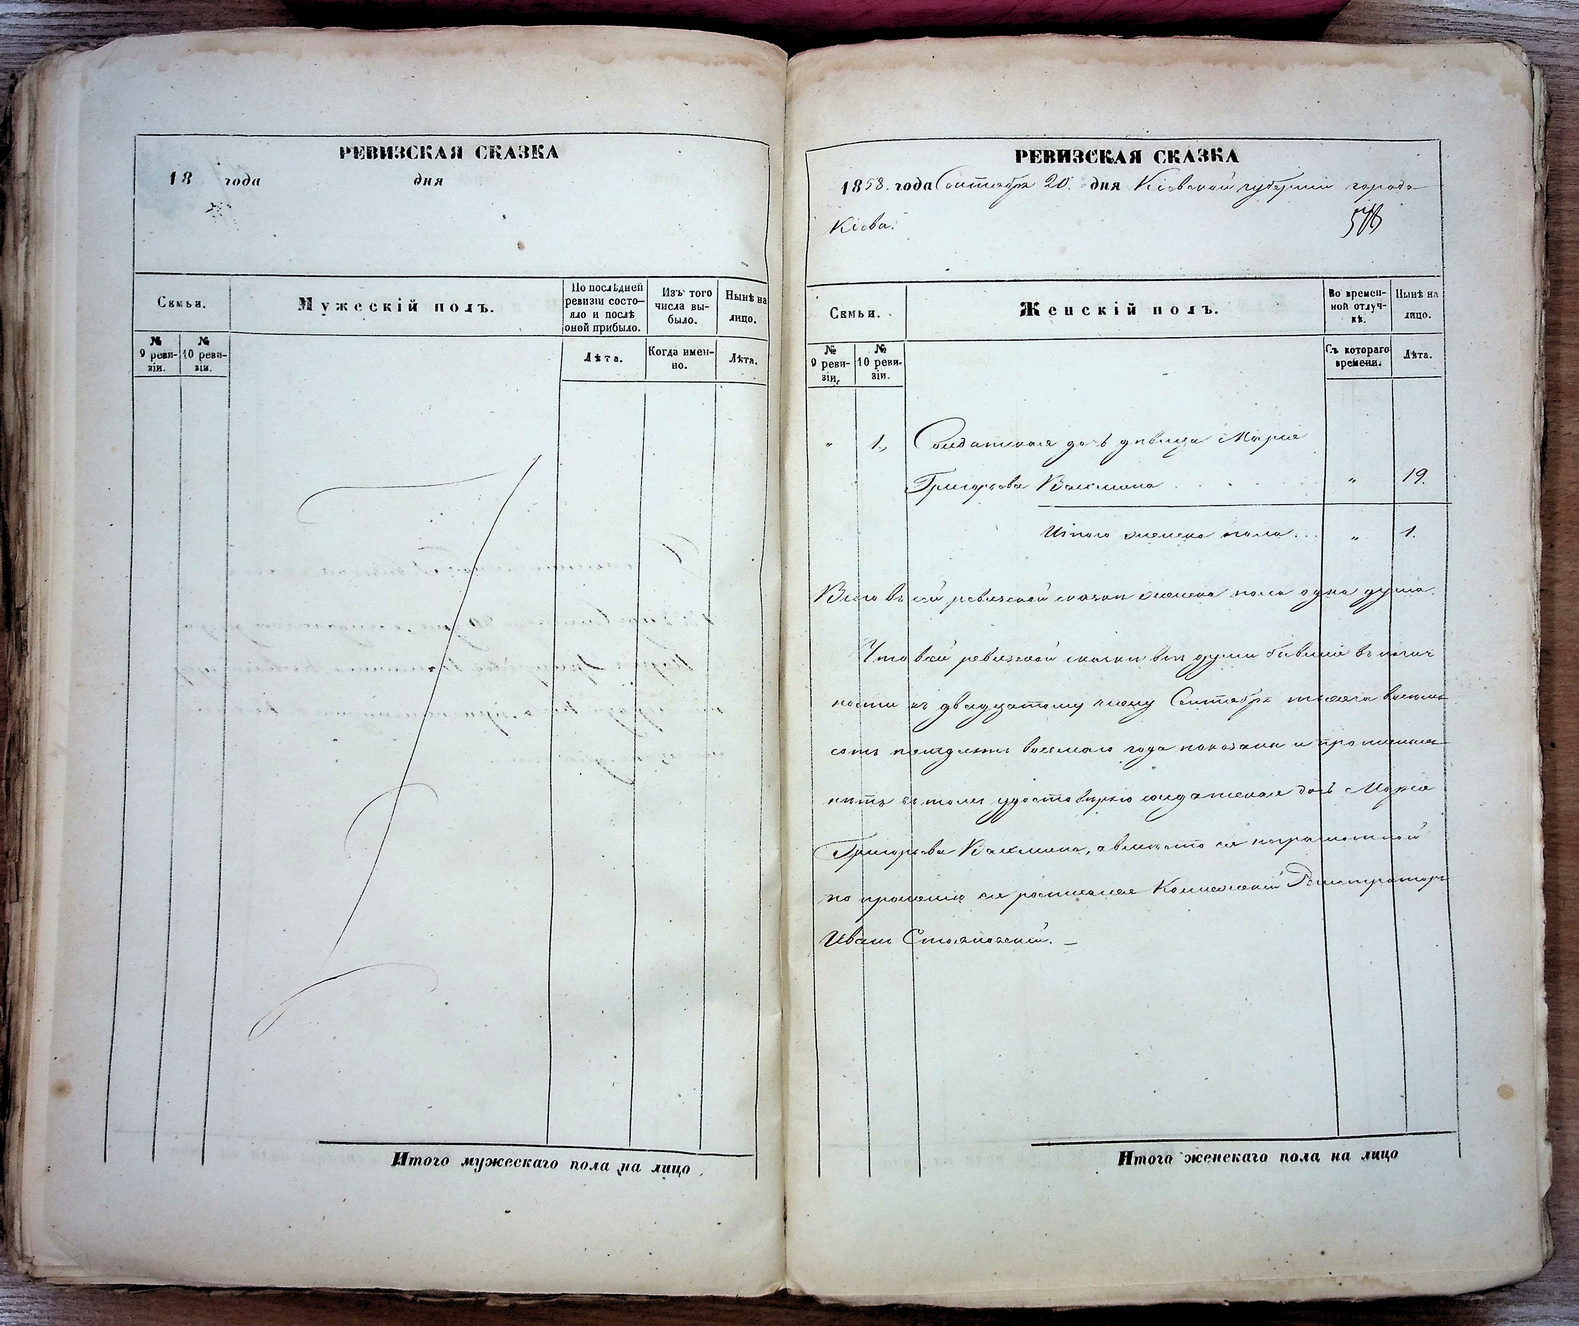 РЕВИЗСКАЯ СКАЗКА
18 года дня
Семьи.
Мужескій полъ.
По послѣдней ревизіи состояло и послѣ оной прибыло.
Изъ того числа выбыло.
Нынѣ на лицо.
№ 9 ревизіи.
№ 10 ревизіи.
Лѣта.
Когда именно.
Лѣта.
Итого мужескаго пола на лицо
РЕВИЗСКАЯ СКАЗКА
1858. года Сентября 20. дня Кіевской губерніи города
Кіева.
Семьи.
Женскій полъ.
Во временной отлучкѣ.
Нынѣ на лицо.
№ 9 ревизіи.
№ 10 ревизіи.
Съ котораго времени.
Лѣта.
„ 1. Солдатская дочь дѣвица Марія
Григорьева „ 19.
Итого женска пола... „ 1.
Всего въ сей ревизской сказки женска пола одна душа.
Что в сей ревизской сказки все души бывшіе в налич
ности къ двадцатому числу Сентября тысяча восемь
сотъ пятдесятъ восьмаго года показаны и прописныхъ
нѣтъ въ томъ удостовѣряю солдатская дочь Марія
Григорьева неграмотной
по прошенію ея росписался Колежскій Регистраторъ
Иванъ
Итого женскаго пола на лицо